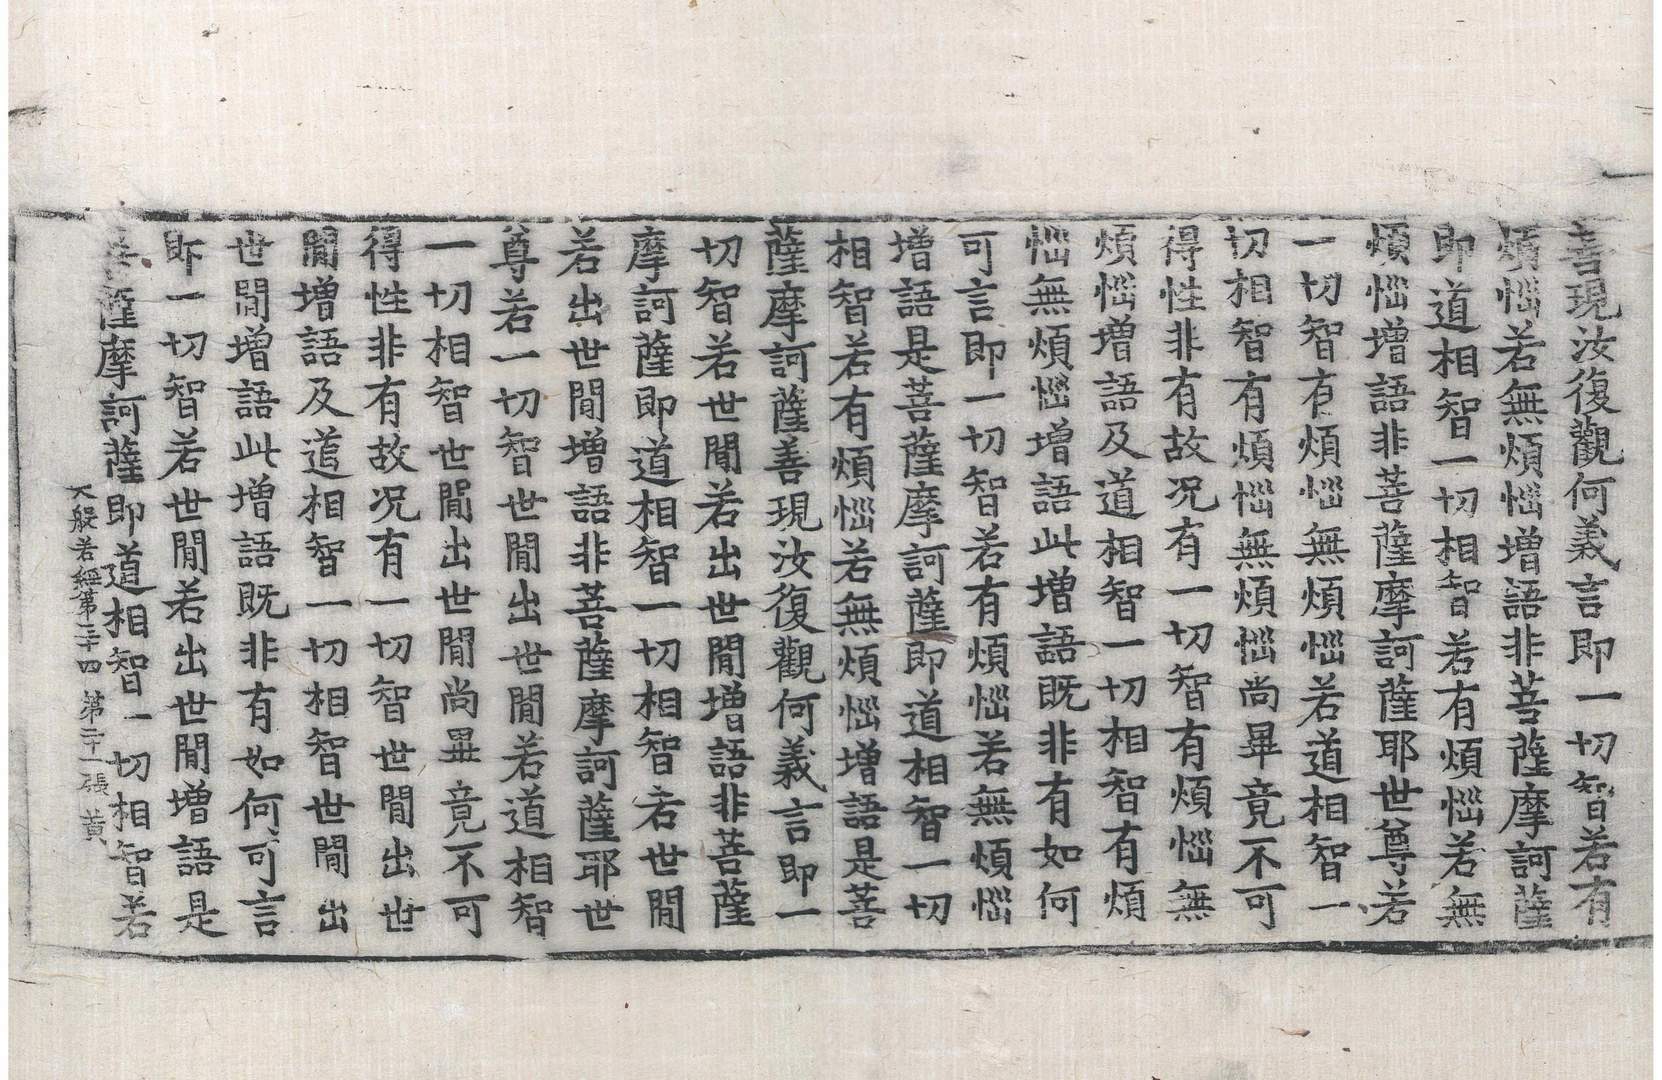 善現汝復觀何義言即一切智若有
煩惱若無煩惱增語非菩薩摩訶薩
即道相智一切相智若有煩惱若無
煩惱增語非菩薩摩訶薩耶世尊若
一切智有煩惱無煩惱若道相智一
切相智有煩惱無煩惱尚畢竟不可
得性非有故況有一切智有煩惱無
煩惱增語及道相智一切相智有煩
惱無煩惱增語此增語既非有如何
可言即一切智若有煩惱若無煩惱
增語是菩薩摩訶薩即道相智一切
相智若有煩惱若無煩惱增語是菩
薩摩訶薩善現汝復觀何義言即一
切智若世閒若出世閒增語非菩薩
摩訶薩即道相智一切相智若世閒
若出世閒增語非菩薩摩訶薩耶世
尊若一切智世閒出世閒若道相智
一切相智世閒出世閒尚畢竟不可
得性非有故況有一切智世閒出世
閒增語及道相智一切相智世閒出
世閒增語此增語既非有如何可言
即一切智若世閒若出世閒增語是
菩薩摩訶薩即道相智一切相智若
大般若經第三十四 第二十一張 黃